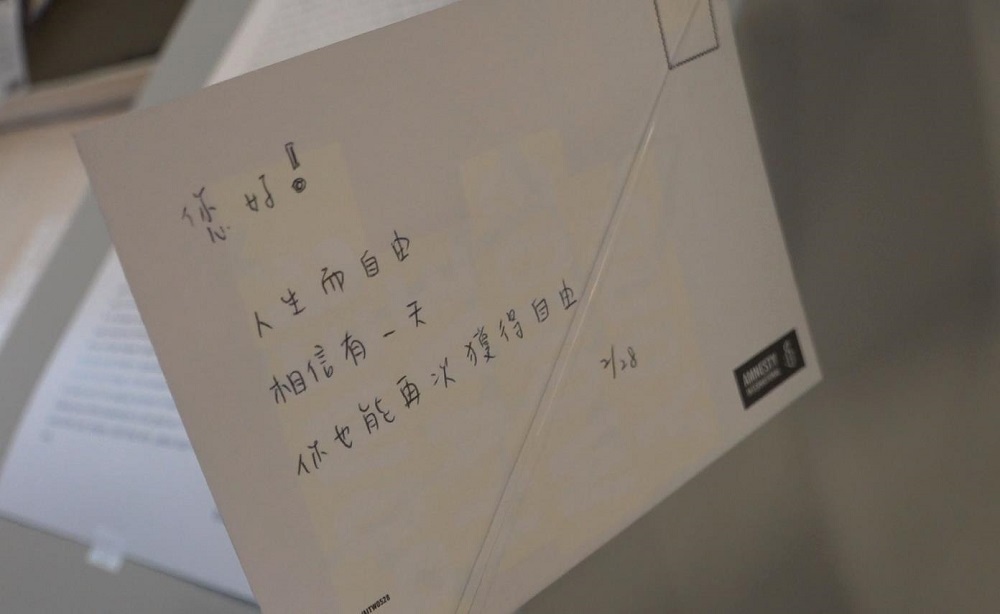 您好!
人生而自由
相信有一天
你也能再次獲得自由
2/28
AMNESTY
INTERNATIONAL